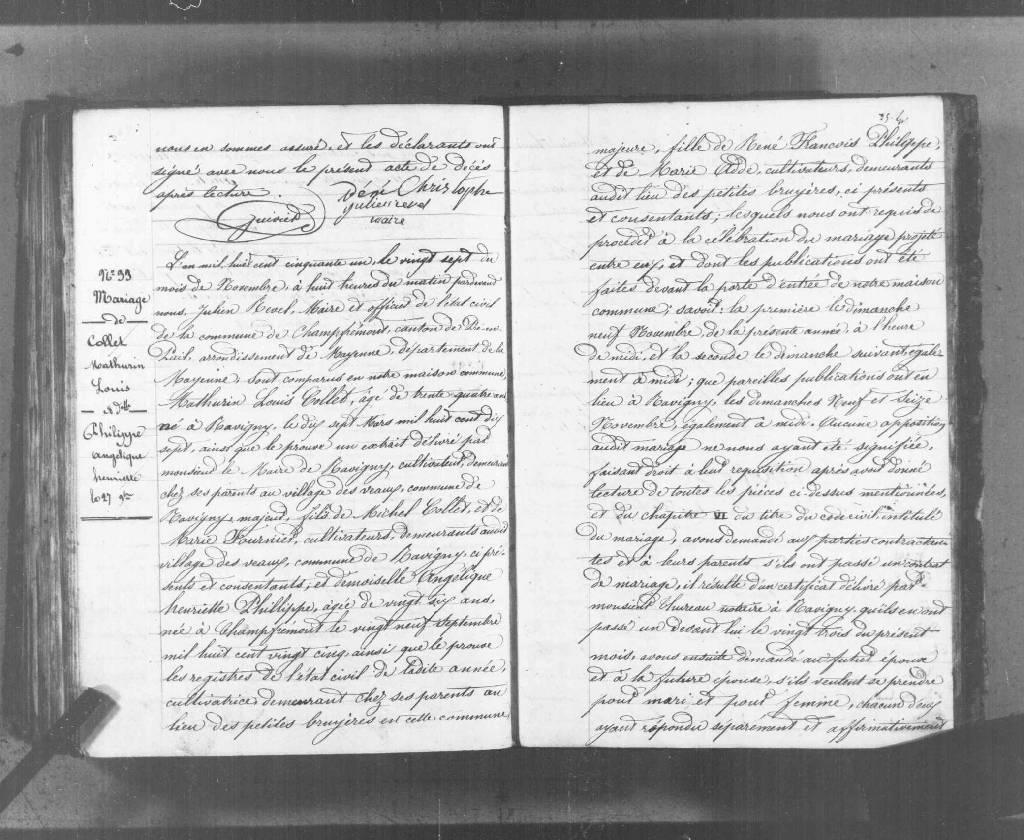 nous en sommes assuré, et les déclarants ont
signé avec nous le présent acte de décès
après lecture.
René Christophe
julien revel
maire
N° 33
Mariage
de
Collet
Mathurin
Louis
& Dlle
Philippe
angelique
henriette
le 27 9bre
L'an mil huit cent cinquante un, le vingt sept du
mois de Novembre, à huit heures du matin pardevant
nous, Julien Revel, Maire et officier de l'état civil
de la commune de Champfrémont, canton de Pré-en-
Pail, arrondissement de Mayenne, département de la
Mayenne, sont comparus en notre maison commune,
Mathurin Louis Collet, agé de trente quatre ans
né à Ravigny, le dix sept Mars mil huit cent dix
sept, ainsi que le prouve un extrait délivré par
monsieur le Maire de Ravigny, cultivateur, demeurant
chez ses parents au village des veaux, commune de
Ravigny, majeur, fils de Michel Collet, et de
Marie Fournier, cultivateurs, demeurants audit
village des veaux, commune de Ravigny, ci pré-
sents et consentants; et demoiselle Angélique
henriette Phillippe, agée de vingt six ans,
née à Champfrémont le vingt neuf septembre
mil huit cent vingt cinq, ainsi que le prouve
les registres de l'état civil de ladite année,
cultivatrice demeurant chez ses parents au
lieu des petites bruyères en cette commune,
majeure, fille de René François Philippe,
et de Marie Adde, cultivateurs, demeurants
audit lieu des petites bruyères, ci présents
et consentants; lesquels nous ont requis de
procéder à la célébration du mariage projeté
entre eux, et dont les publications ont été
faites devant la porte d'entrée de notre maison
commune; savoir: la première le dimanche
neuf Novembre, de la présente année, à l'heure
de midi, et la seconde le dimanche suivant, égale-
ment à midi; que pareilles publications ont eu
lieu à Ravigny, les dimanches Neuf et Seize
Novembre, également à midi. Aucune opposition
audit mariage ne nous ayant été signifiée,
faisant droit à leur requisition après avoir donné
lecture de toutes les pièces ci-dessus mentionnées,
et du chapitre VI du titre du code civil, intitulé
Du mariage, avons demandé aux parties contractan-
tes et à leurs parents s'ils ont passé un contrat
de mariage, il résulte d'un certificat délivré par
monsieur thureau notaire à Ravigny, qu'ils en ont
passé un devant lui le vingt trois du présent
mois, avons ensuite demandé au futur époux
et à la future épouse, s'ils veulent se prendre
pour mari et pour femme, chacun d'eux
ayant répondu séparément et affirmativement